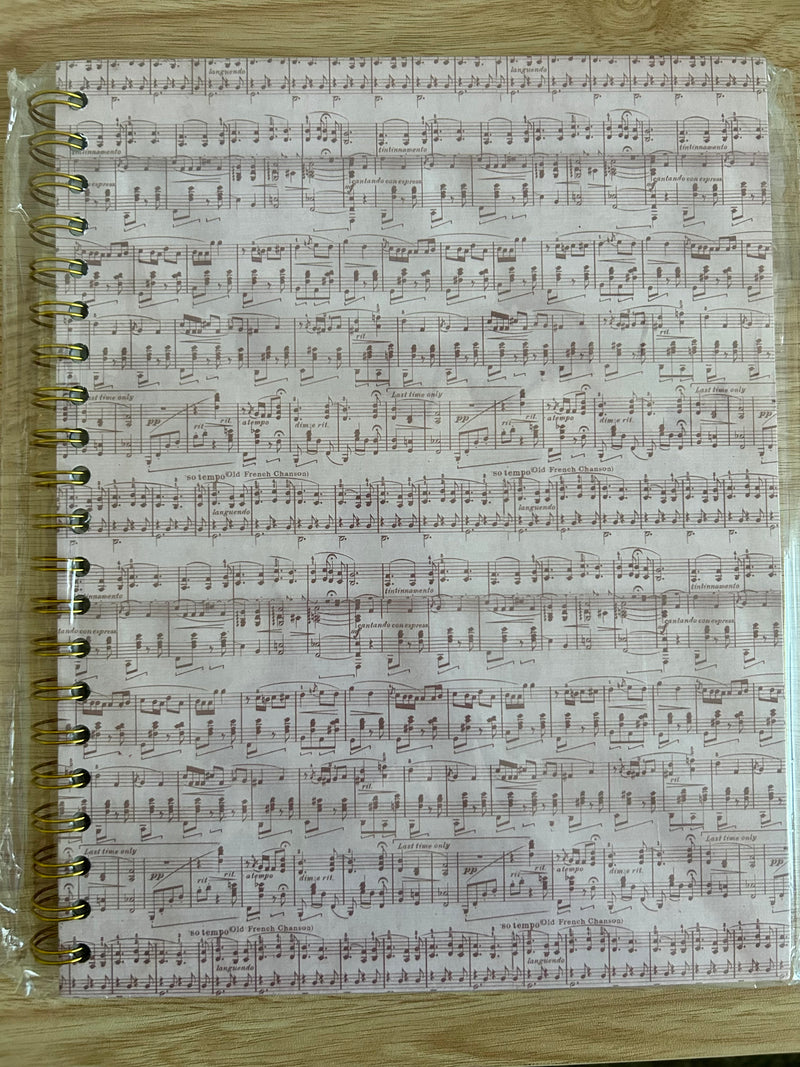 languendo languendo
p. p. p. p. p.
tintinnamento tintinnamento tintinnamento
express cantando con express cantando con express
rit. rit.
Last time only Last time only Last time only
pp rit. rit. a tempo dim e rit. pp rit. rit. a tempo dim e rit. pp
so tempo (Old French Chanson) so tempo (Old French Chanson)
languendo languendo
p. p. p. p. p.
tintinnamento tintinnamento tintinnamento
tando con express cantando con express cantando con express
rit. rit.
Last time only Last time only Last time only
pp rit. rit. a tempo dim e rit. pp rit. rit. a tempo dim e rit. pp
so tempo (Old French Chanson) so tempo (Old French Chanson)
languendo languendo